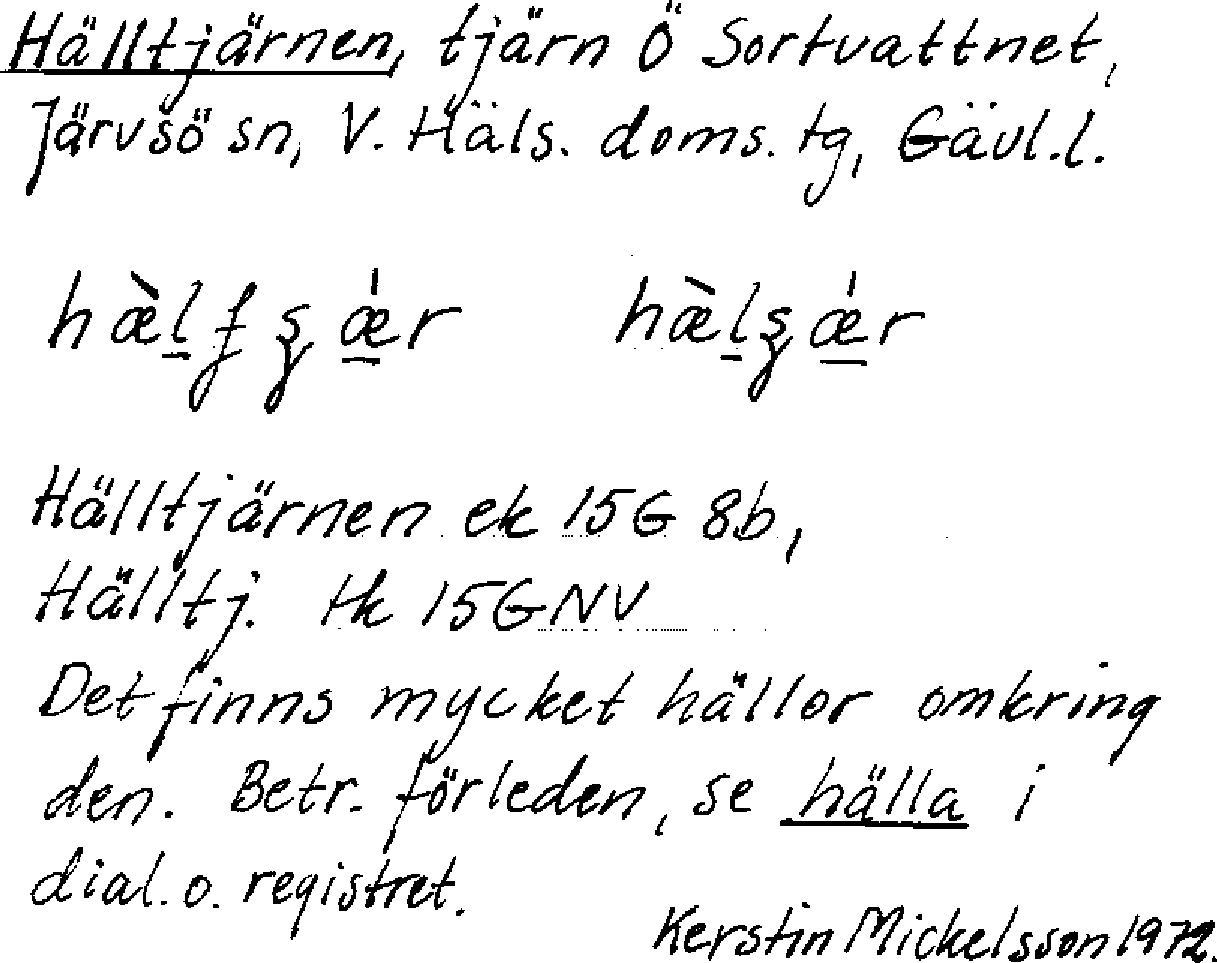 Hälltjärnen, tjärn Ö Sortvattnet,
Järvsö sn, V. Häls. doms. tg, Gävl.l.
Hälltjärnen ek 15G 8b,
Hälltj. tk 15G NV
Det finns mycket hällor omkring
den. Betr. förleden, se hälla i
dial.o. registret.
Kerstin Mickelsson 1972.